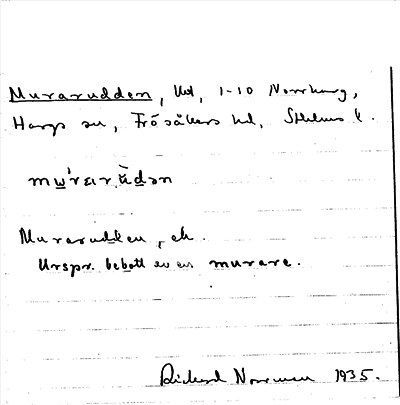 Murarudden, lht, 1-10 Norrburg,
Hargs sn, Frösåkers hd, Sthlms l.
mu̱'rɛırùdən
Murarudden, ek.
Urspr. bebott av en murare.
Rickard Norrman 1935.